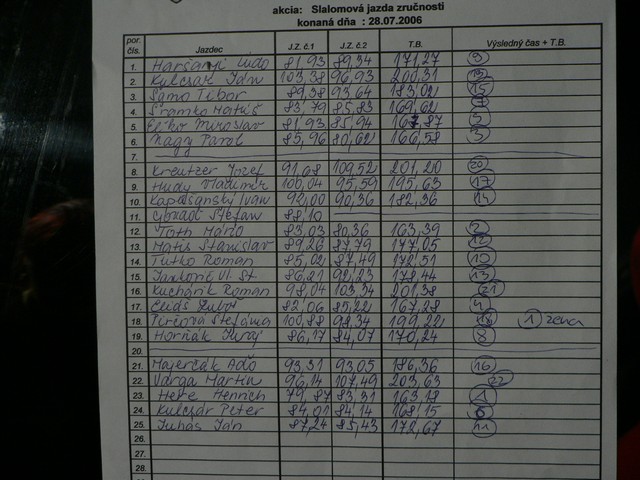 akcia: Slalomová jazda zručnosti
konaná dňa : 28.07.2006
por. čís. Jazdec J.Z. č.1 J.Z. č.2 T.B. Výsledný čas + T.B.
1. 81,93 89,34 171,27 9
2. Kulcsár Ján 103,38 96,93 200,31
3. Samo Tibor 89,38 93,64 183,02 15
4. Šramko Matúš 83,79 85,83 169,62 7
5. Miroslav 81,93 85,94 167,87 5
6. Nagy Pavol 85,96 80,62 166,58 3
7.
8. Kreutzer Jozef 91,68 109,52 201,20 20
9. Hudý Vladimír 100,04 95,59 195,63 17
10. Kapušanský Ivan 92,00 90,36 182,36 14
11. Štefan 88,10
12. Tóth Mário 83,03 80,36 163,39 2
13. Matis Stanislav 89,26 87,79 177,05 12
14. Tutko Roman 85,02 87,49 172,51 10
15. Vl. St. 86,21 92,23 178,44 13
16. Kuchárik Roman 98,04 103,34 201,38 21
17. Eliáš Ľuboš 82,06 85,22 167,28 4
18. Štefánia 100,88 98,34 199,22 18 1 žena
19. Horňák Juraj 86,17 84,07 170,24 8
20.
21. Majerčák 93,31 93,05 186,36 16
22. Varga Martin 96,14 107,49 203,63 22
23. Henrich 79,87 83,31 163,18 1
24. Kulcsár Peter 84,01 84,14 168,15 6
25. Juhás Ján 87,24 85,43 172,67 11
26.
27.
28.